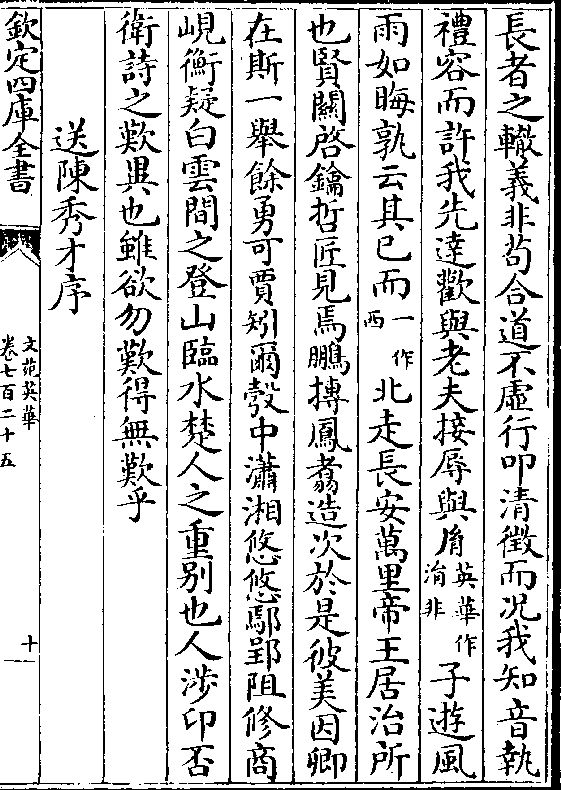 長者之轍義非苟合道不虛行叩清徵而况我知音執
禮容而許我先達歡與老夫接辱與㑗英華作湑非子遊風
雨如晦孰云其已而一作西北走長安萬里帝王居治所
也賢關啓鑰哲匠見焉鵬摶鳳翥造次於是彼美因卿
在斯一舉餘勇可賈矧爾彀中瀟湘悠悠鄢郢阻修商
峴衡疑白雲間之登山臨水楚人之重别也人涉卬否
衛詩之歎異也雖欲勿歎得無歎乎
送陳秀才序
欽定四庫全書
文苑英華
卷七百二十五
十一